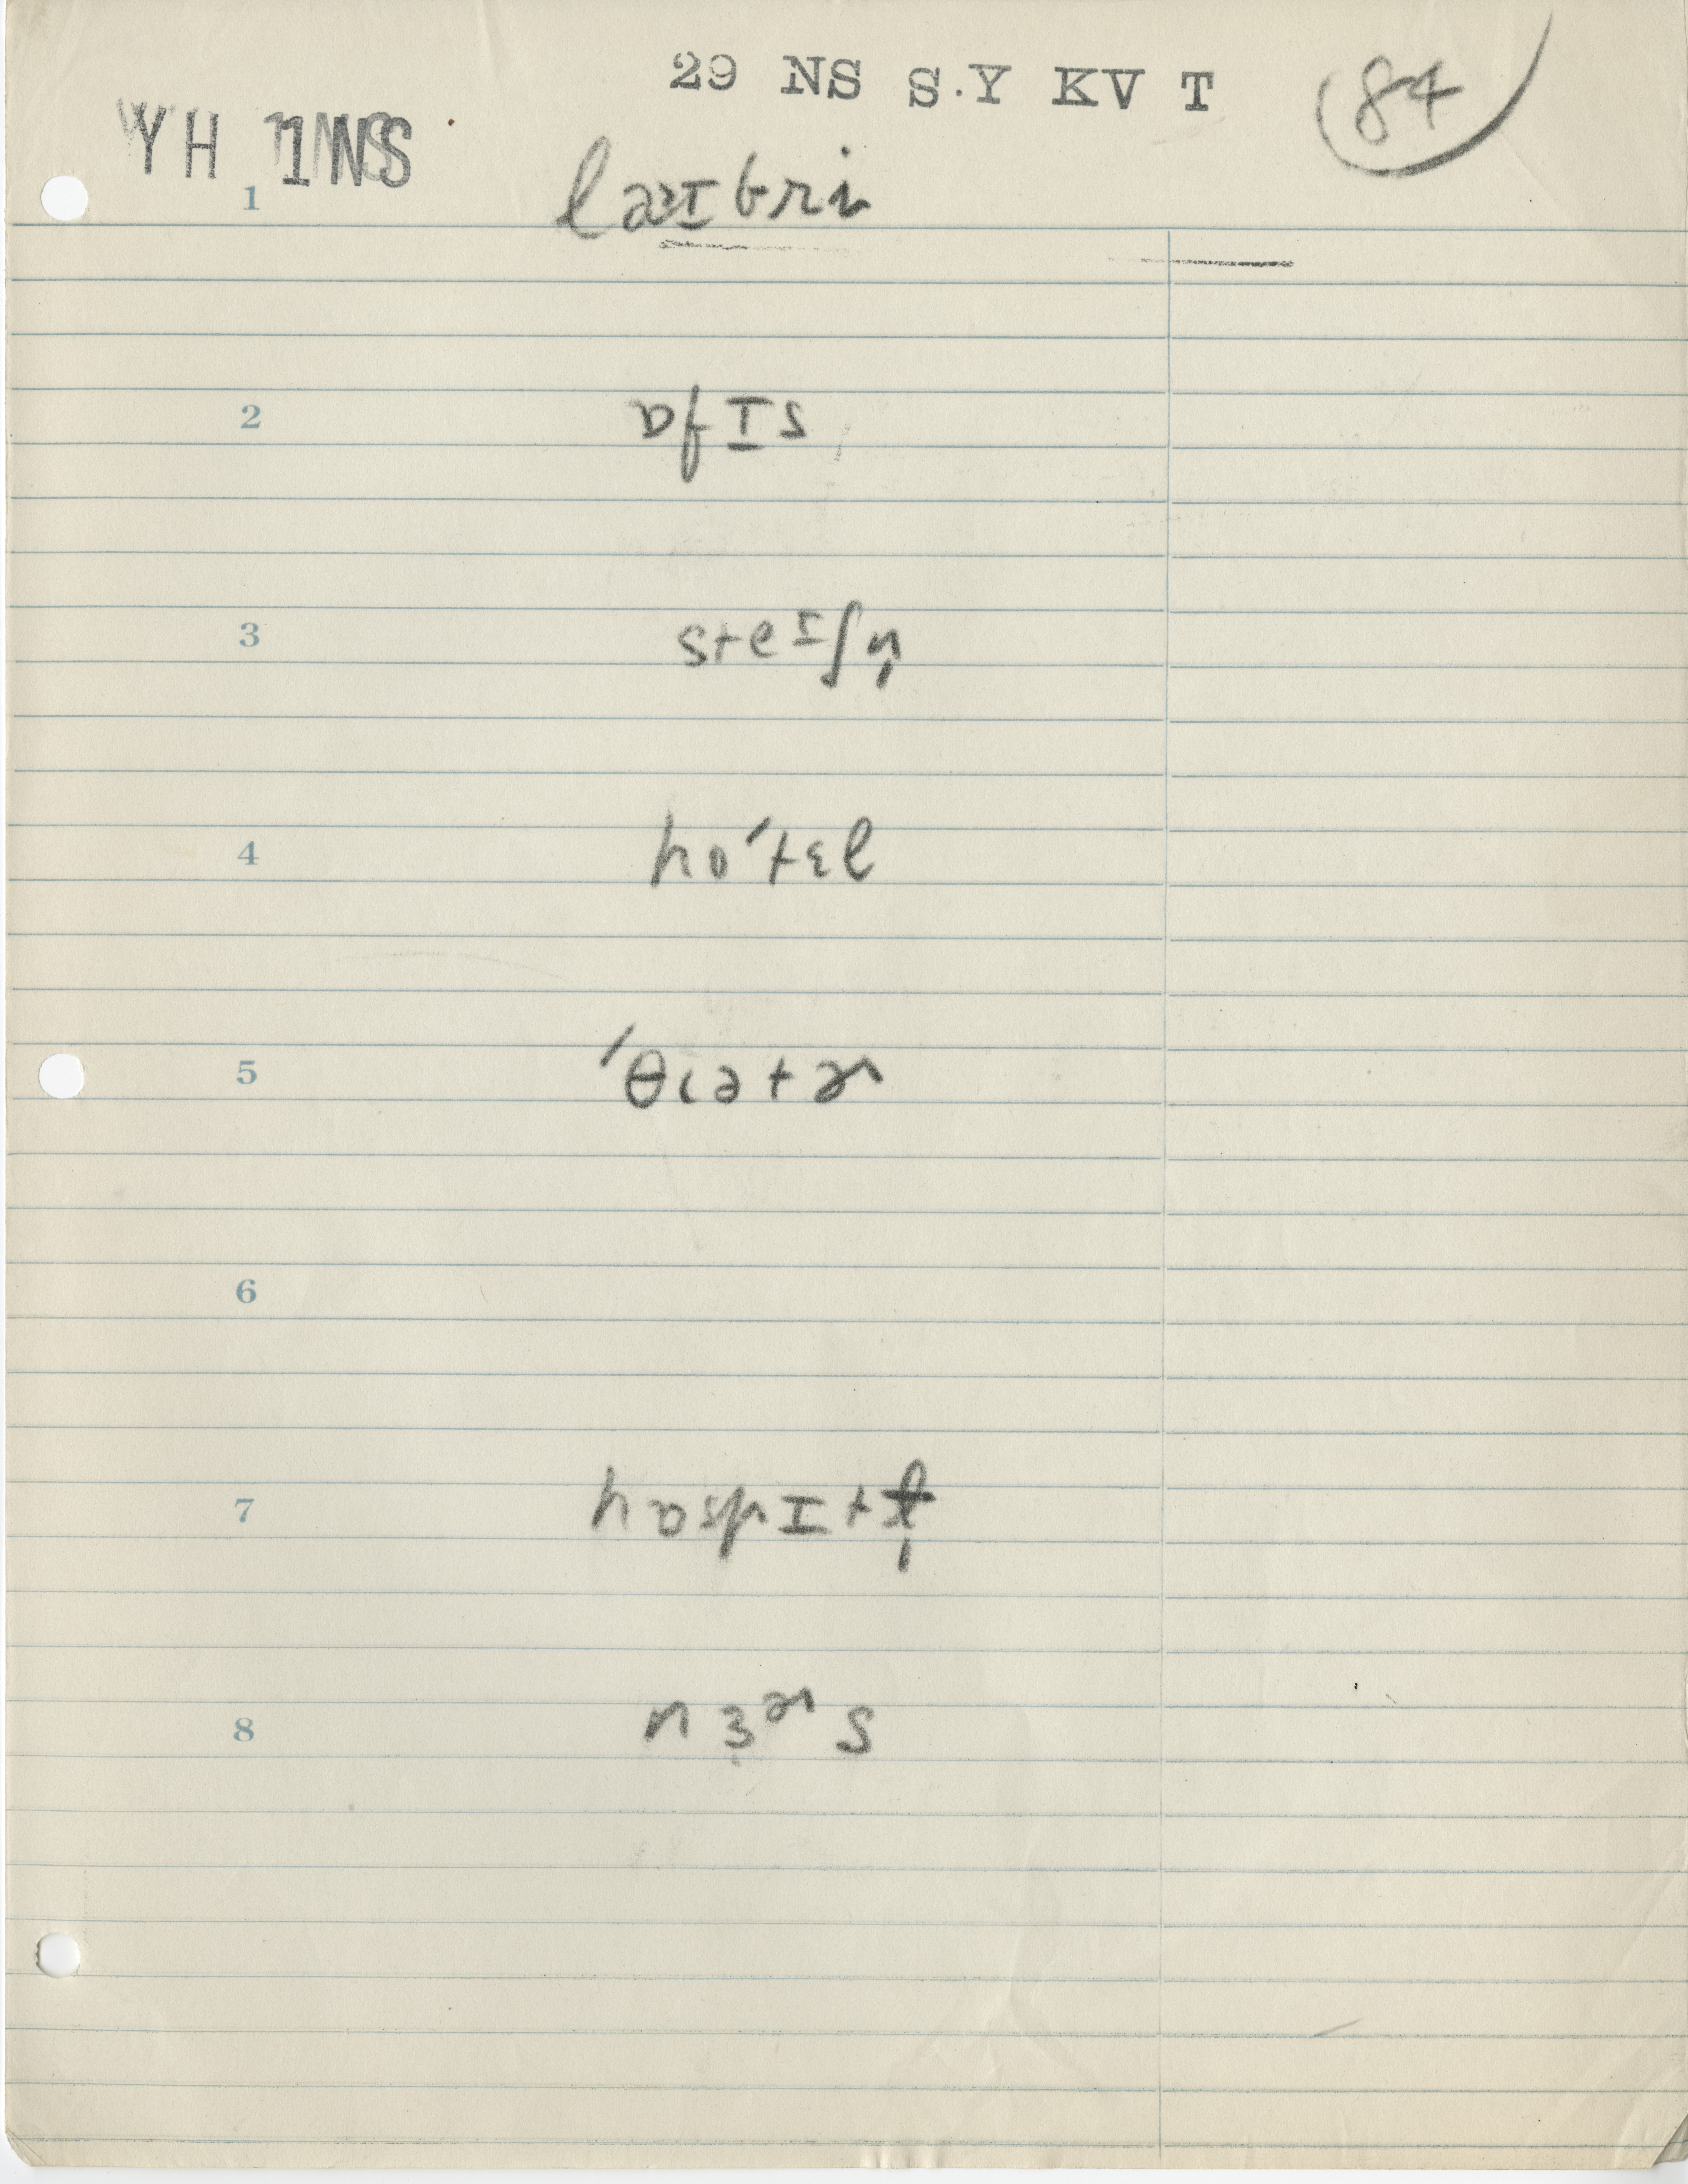 29 NS S.Y KV T
84
YH 1NS
1 laɪbri
2 ɒfɪs
3 steɪʃn̩
4 ho'tɛl
5 'θiətɚ
6
7 hɒspɪtɫ̩
8 nɜɚs